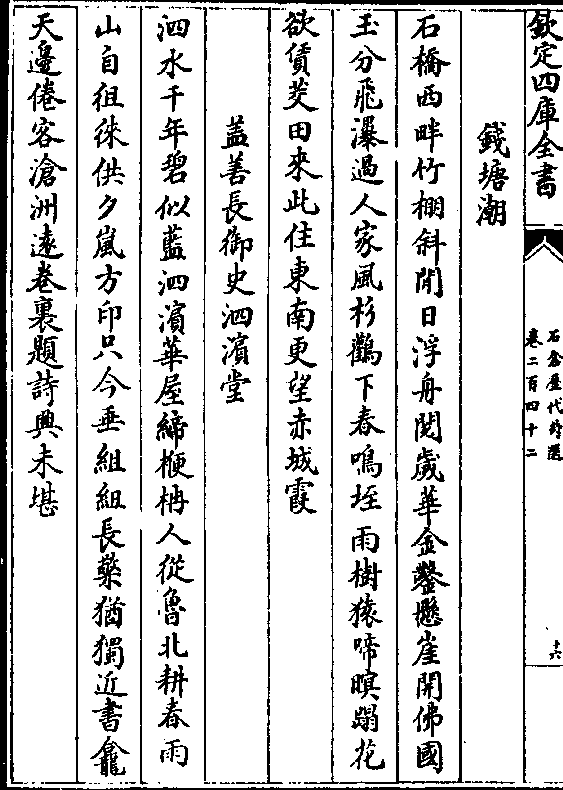 欽定四庫全書
石倉歷代詩選
卷二百四十二
十六
錢塘潮
石橋西畔竹棚斜閒日浮舟閱歲華金鑿懸崖開佛國
玉分飛瀑過人家風杉鸛下春鳴垤雨樹猿啼暝蹋花
欲賃茭田來此住東南更望赤城霞
蓋善長御史泗濵堂
泗水千年碧似藍泗濵華屋締楩枏人從魯北耕春雨
山自徂徠供夕嵐方印只今垂組組長藥猶獨近書龕
天邊倦客滄洲遠卷裏題詩興未堪